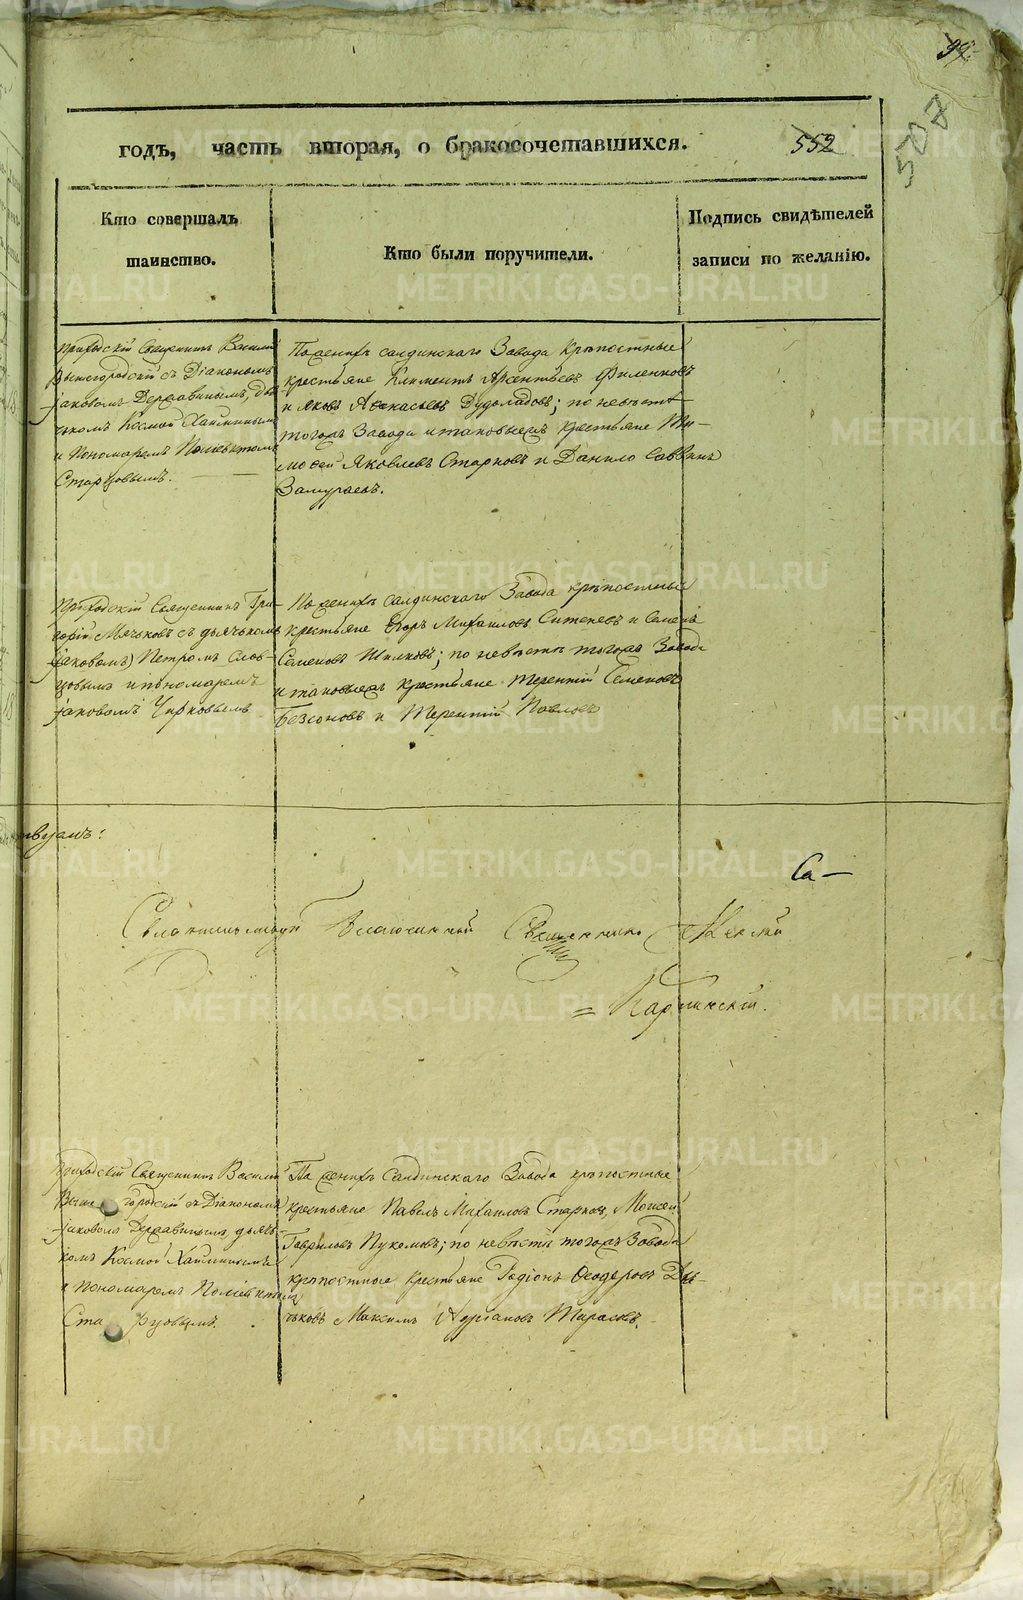 годъ, часть вторая, о бракосочетавшихся. 552
507
Кто совершалъ таинство.
Кто были поручители.
Подпись свидѣтелей записи по желанію.
Приходскій Священникъ Василій
Вышегородскій съ Діакономъ
Іаковомъ Державинымъ, дья-
чкомъ Космой
и Пономаремъ Поліевктомъ
Старцовымъ.
По женихѣ салдинскаго Завода Крѣпостные
крестьяне Климентъ Арсентьевъ Филенковъ
и Яковъ Аѳанасьевъ Дудоладовъ; по невѣстѣ
тогожъ Завода и таковыежъ крестьяне Ти-
моѳей Яковлевъ Старковъ и Данило Саввинъ
Замураевъ.
Приходскій Священникъ Гри-
горій Мячковъ съ дьячкомъ
(Іаковомъ) Петромъ Слов-
цовымъ и пономаремъ
Іаковомъ Чирковымъ
По женихѣ салдинскаго Завода крѣпостные
крестьяне Егоръ Михайловъ и Семенъ
Семеновъ Шилковъ; по невѣстѣ тогожъ Завода
и таковыежъ крестьяне Терентій Семеновъ
Безсоновъ и Терентій Павловъ
Са-
Благочинный Священникъ
Карпинскій.
Приходскій Священникъ Василій
Вышегородскій съ Діакономъ
Іаковомъ Державинымъ дьяч-
комъ Космой
и Пономаремъ Поліевктомъ
Старцовымъ.
По женихѣ Салдинскаго Завода крѣпостные
крестьяне Павелъ Михаиловъ Старковъ, Моисей
Гавриловъ; по невѣстѣ тогожъ Завода
крѣпостные крестьяне Родіонъ Ѳеодоровъ Дья-
чковъ Максимъ Тарасовъ.
METRIKI.GASO-URAL.RU